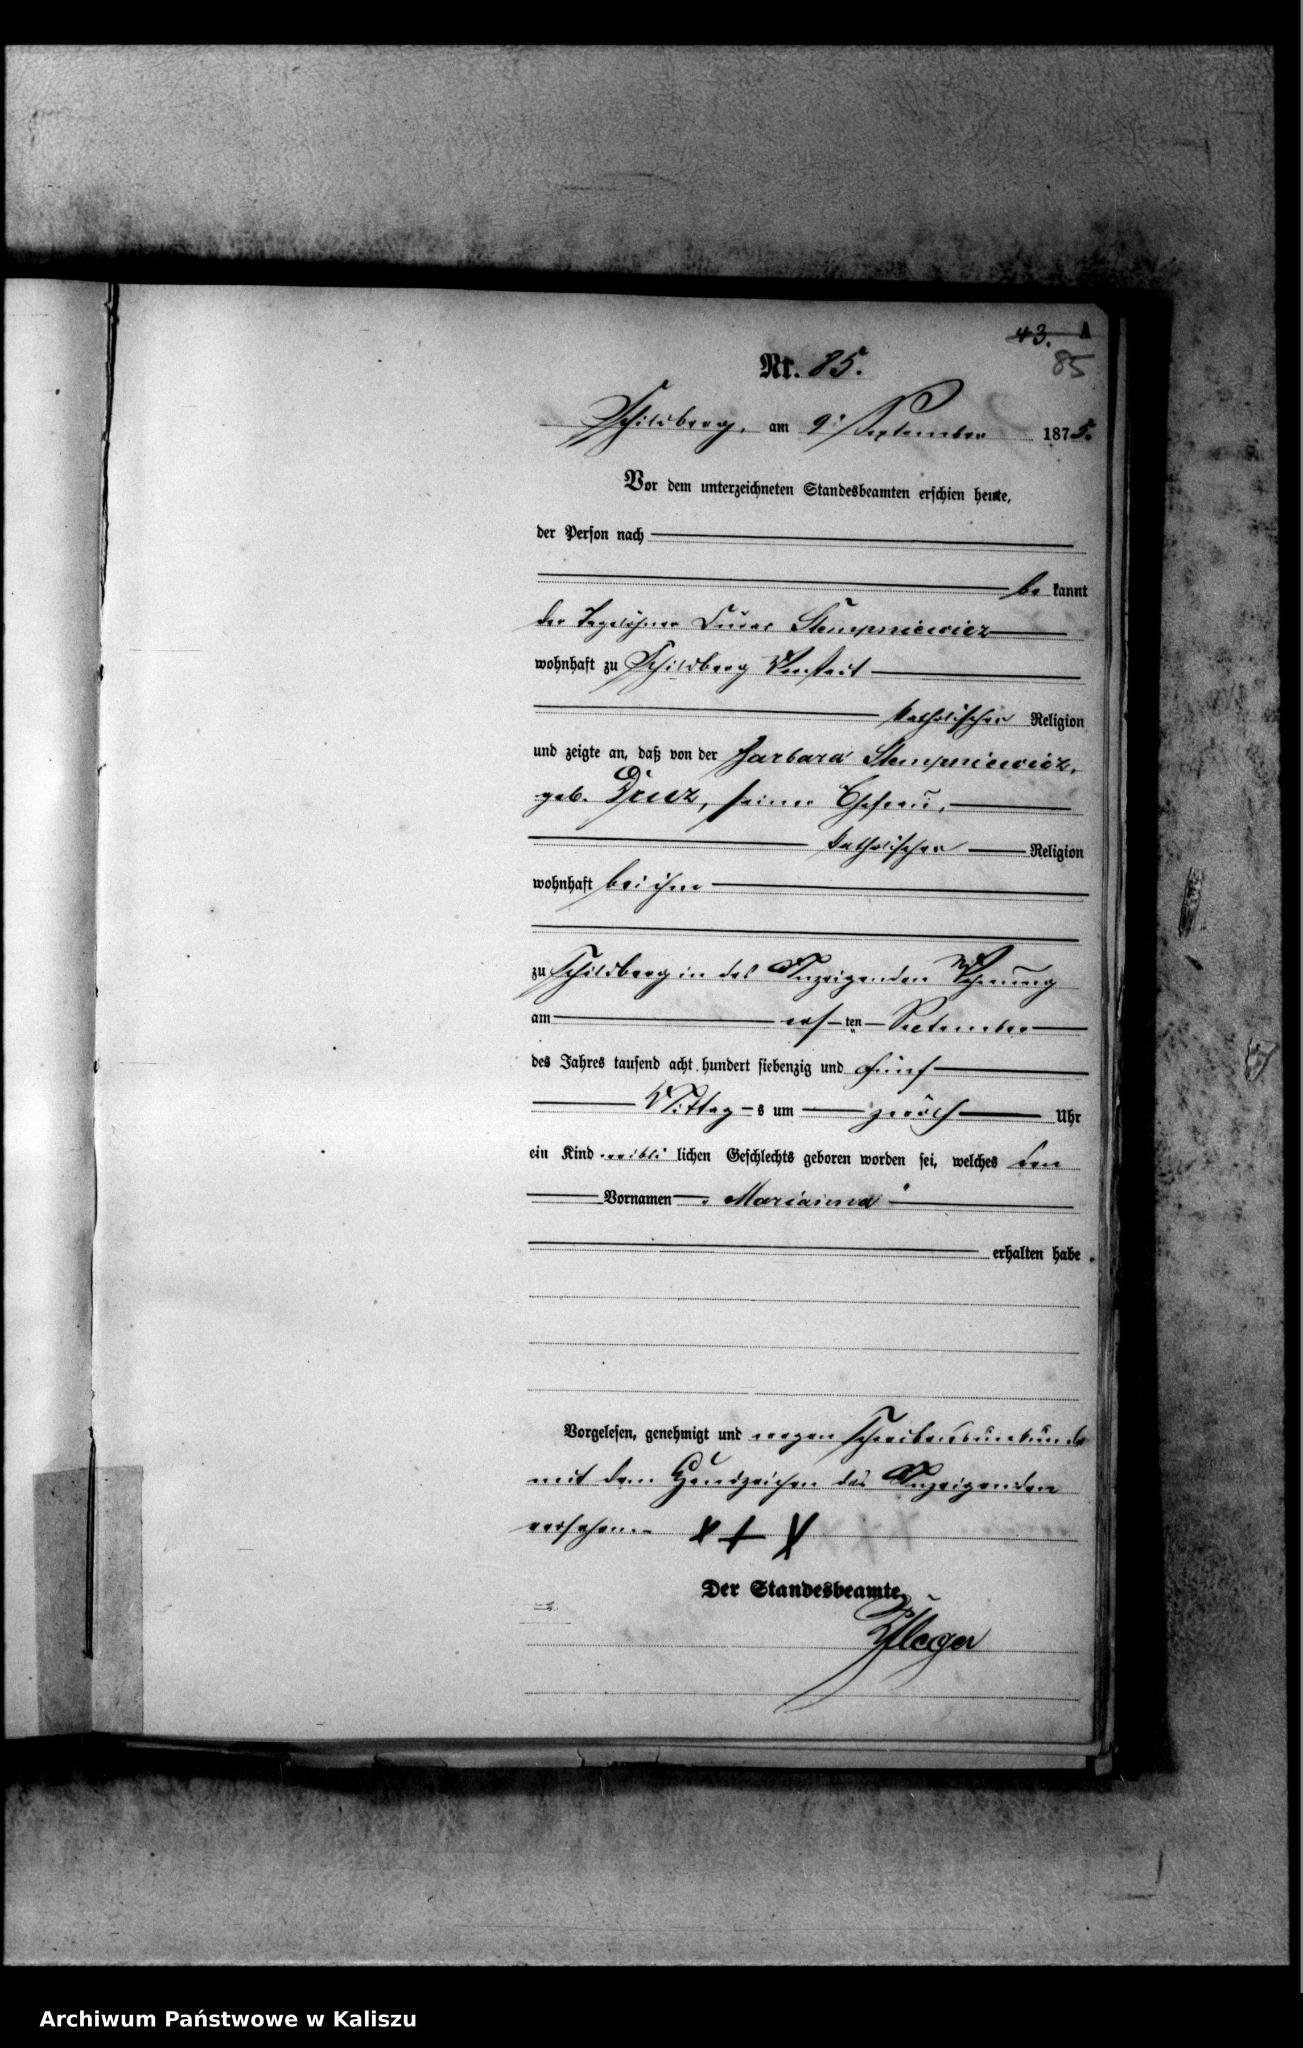 43. A
85
Nr. 85.
Schildberg, am 9. September 1875.
Vor dem unterzeichneten Standesbeamten erschien heute,
der Person nach
be kannt
der Tagelöhner Lucas Stempniewicz
wohnhaft zu Schildberg Vorstadt
katholischer Religion
und zeigte an, daß von der Barbara Stempniewicz,
geb. seiner Ehefrau,
katholischer Religion
wohnhaft bei ihm
zu Schildberg in des Anzeigenden Wohnung
am ersten September
des Jahres tausend acht hundert siebenzig und fünf
Mittag s um zwölf Uhr
ein Kind weibli lichen Geschlechts geboren worden sei, welches den
Vornamen „Marianna"
erhalten habe.
Vorgelesen, genehmigt und wegen Schreibensunkunde
mit dem Handzeichen des Anzeigenden
versehen. x + x
Der Standesbeamte.
Pfleger
Archiwum Państwowe w Kaliszu